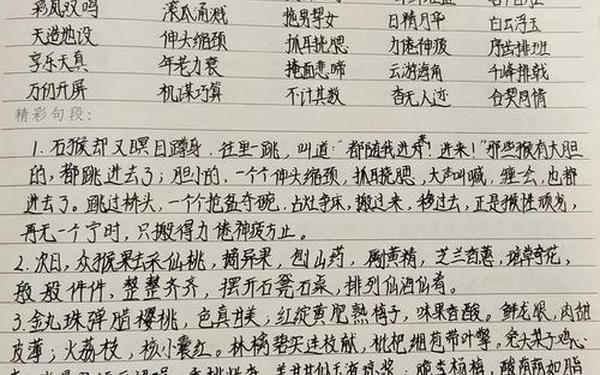 彩凤双鸣 深瓜涌溅 拖男挈女 日精月华 白云浮玉
天造地设 伸头缩颈 抓耳挠腮 力倦神疲 序齿排班
享乐天真 年老力衰 掩面悲啼 云游海角 千峰排戟
万仞开屏 机谋巧算 不计其数 杳无人迹 合契同情
精彩句段:
1. 石猴却又瞑目蹲身,往里一跳,叫道:"都随我进来!进来!"那些猴有大胆
的,都跳进去了;胆小的,一个个伸头缩颈,抓耳挠腮,大声叫喊,缠一会,也都
进去了。跳过桥头,一个个抢盆夺碗,占灶争床,搬过来,移过去,正是猴性顽劣,
再无一个宁时,只搬得力倦神疲方止。
2. 次日,众猴果去采仙桃,摘异果,刨山药,劚黄精,芝兰香蕙,瑶草奇花,
般般件件,整整齐齐,摆开石凳石桌,排列仙酒仙肴。
3. 金丸珠弹腊樱桃,色真甘美;红绽黄肥熟梅子,味果香酸。鲜龙眼,肉甜
皮薄;火荔枝,核小囊红。林檎碧实连枝献,枇杷缃苞带叶擎。兔头梨子鸡心